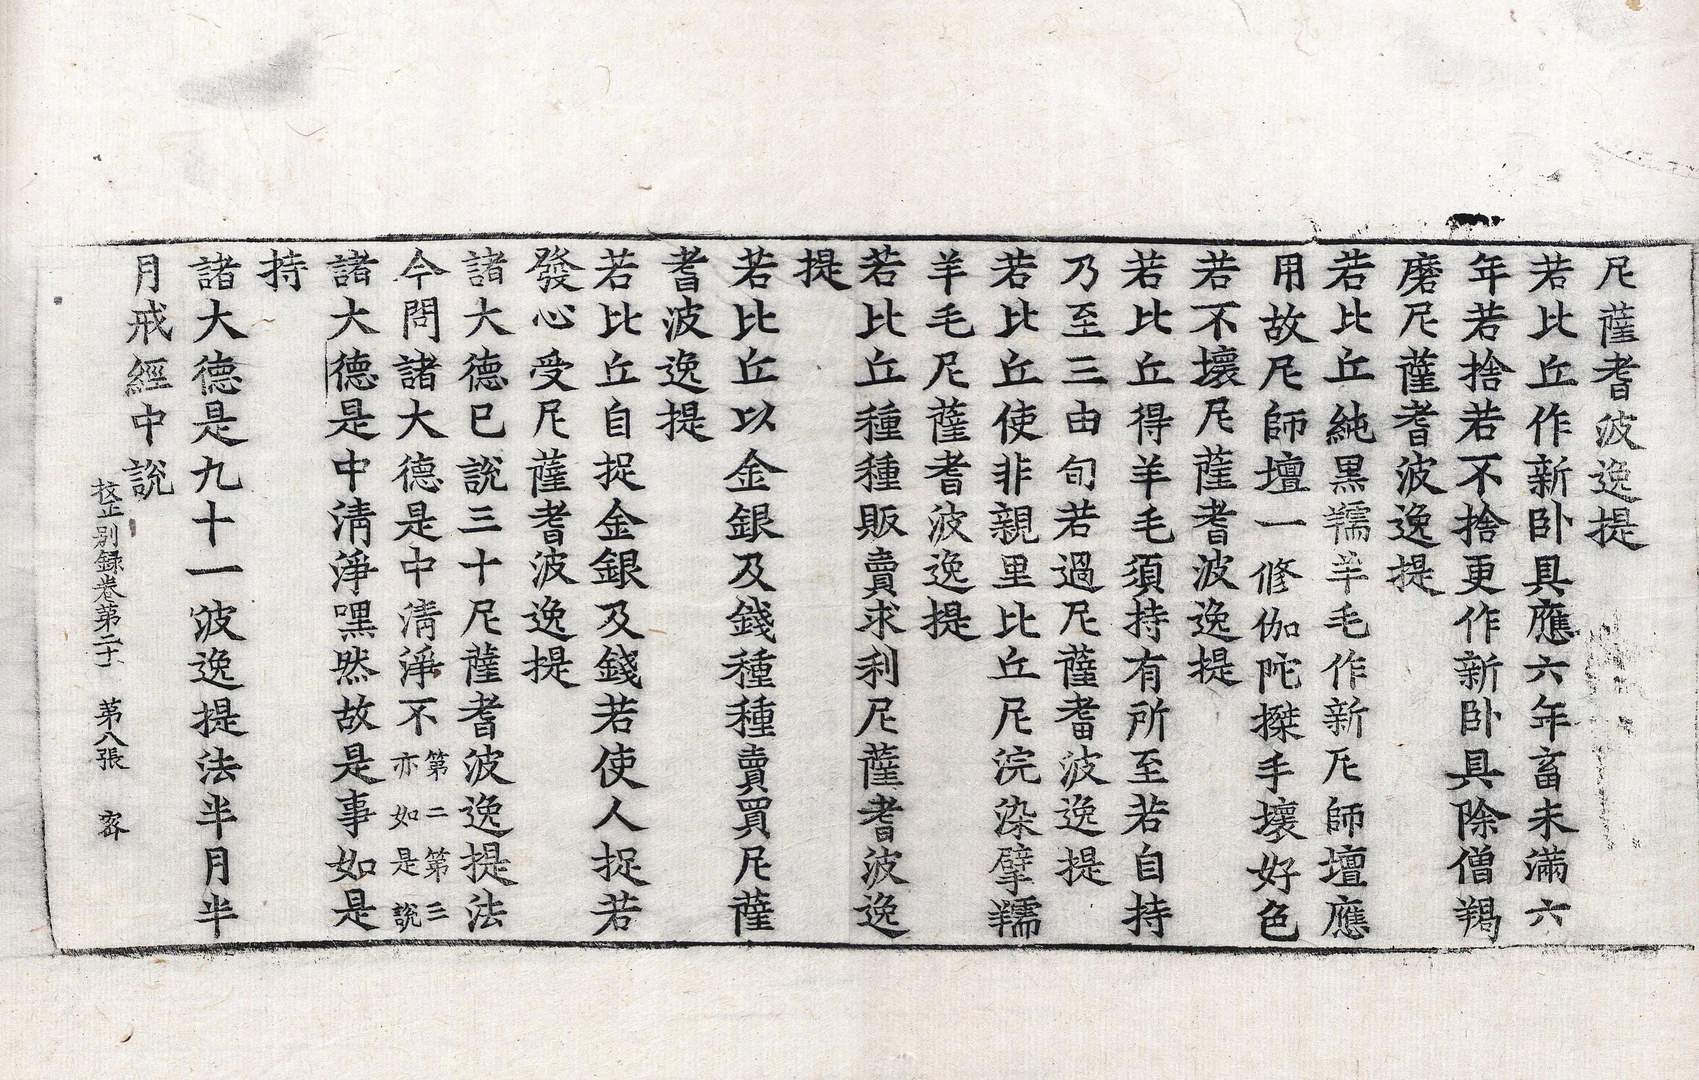 尼薩耆波逸提
若比丘作新卧具應六年畜未滿六
年若捨若不捨更作新卧具除僧羯
磨尼薩耆波逸提
若比丘純黑羺羊毛作新尼師壇應
用故尼師壇一修伽陀搩手壞好色
若不壞尼薩耆波逸提
若比丘得羊毛須持有所至若自持
乃至三由旬若過尼薩耆波逸提
若比丘使非親里比丘尼浣染擘羺
羊毛尼薩耆波逸提
若比丘種種販賣求利尼薩耆波逸
提
若比丘以金銀及錢種種賣買尼薩
耆波逸提
若比丘自捉金銀及錢若使人捉若
發心受尼薩耆波逸提
諸大德已說三十尼薩耆波逸提法
今問諸大德是中清淨不第二第三亦如是說
諸大德是中清淨嘿然故是事如是
持
諸大德是九十一波逸提法半月半
月戒經中說
校正別錄卷第二十 第八張